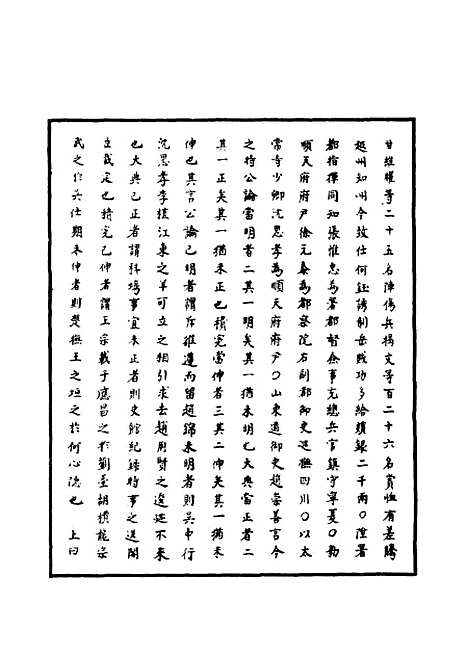 甘維權等二十五名陣傷兵楊文等百二十六名賞恤有差騰
越州知州今致仕何鈺誘制岳賊功多給犒銀二千兩○陞署
都指揮同知張惟忠為署都督僉事充總兵官鎮守寧夏○勑
順天府府尹徐元泰為都察院右副都御史巡撫四川○以太
常寺少卿沈思孝為順天府府尹○山東道御史趙崇善言今
之時公論當明者二其一明矣其一猶未明也大典當正者二
其一正矣其一猶未正也積冤當伸者三其二伸矣其一猶未
伸也其言公論已明者謂斥維遵而留趙錦未明者則吳中行
沈思孝李植江東之羊可立之相引求去趙用賢之逡巡不來
也大典已正者謂科場事宜未正者則史館紀錄時事之遺闕
立裁定也積冤已伸者謂王宗載于應昌之於劉臺胡檟龍宗
武之於吳仕期未伸者則楚撫王之垣之於何心隱也　上曰